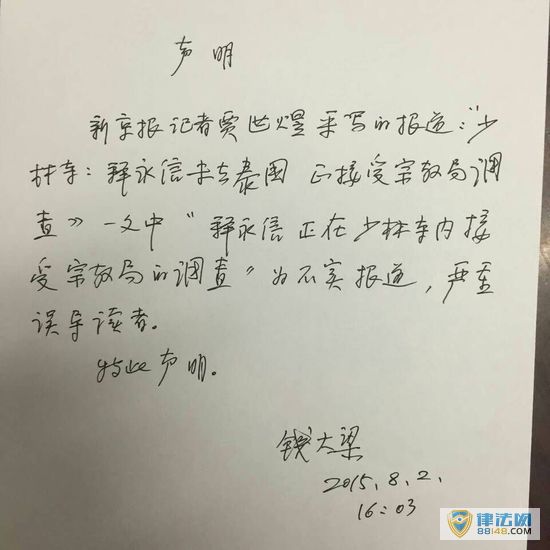 声明
新京报记者贾世煜采写的报道：“少
林寺：释永信未去泰国 正接受宗教局调
查》一文中“释永信正在少林寺内接
受宗教局的调查”为不实报道，严重
误导读者。
特此声明。
钱大梁
2015.8.2.
16:03
律法网
88148.COM